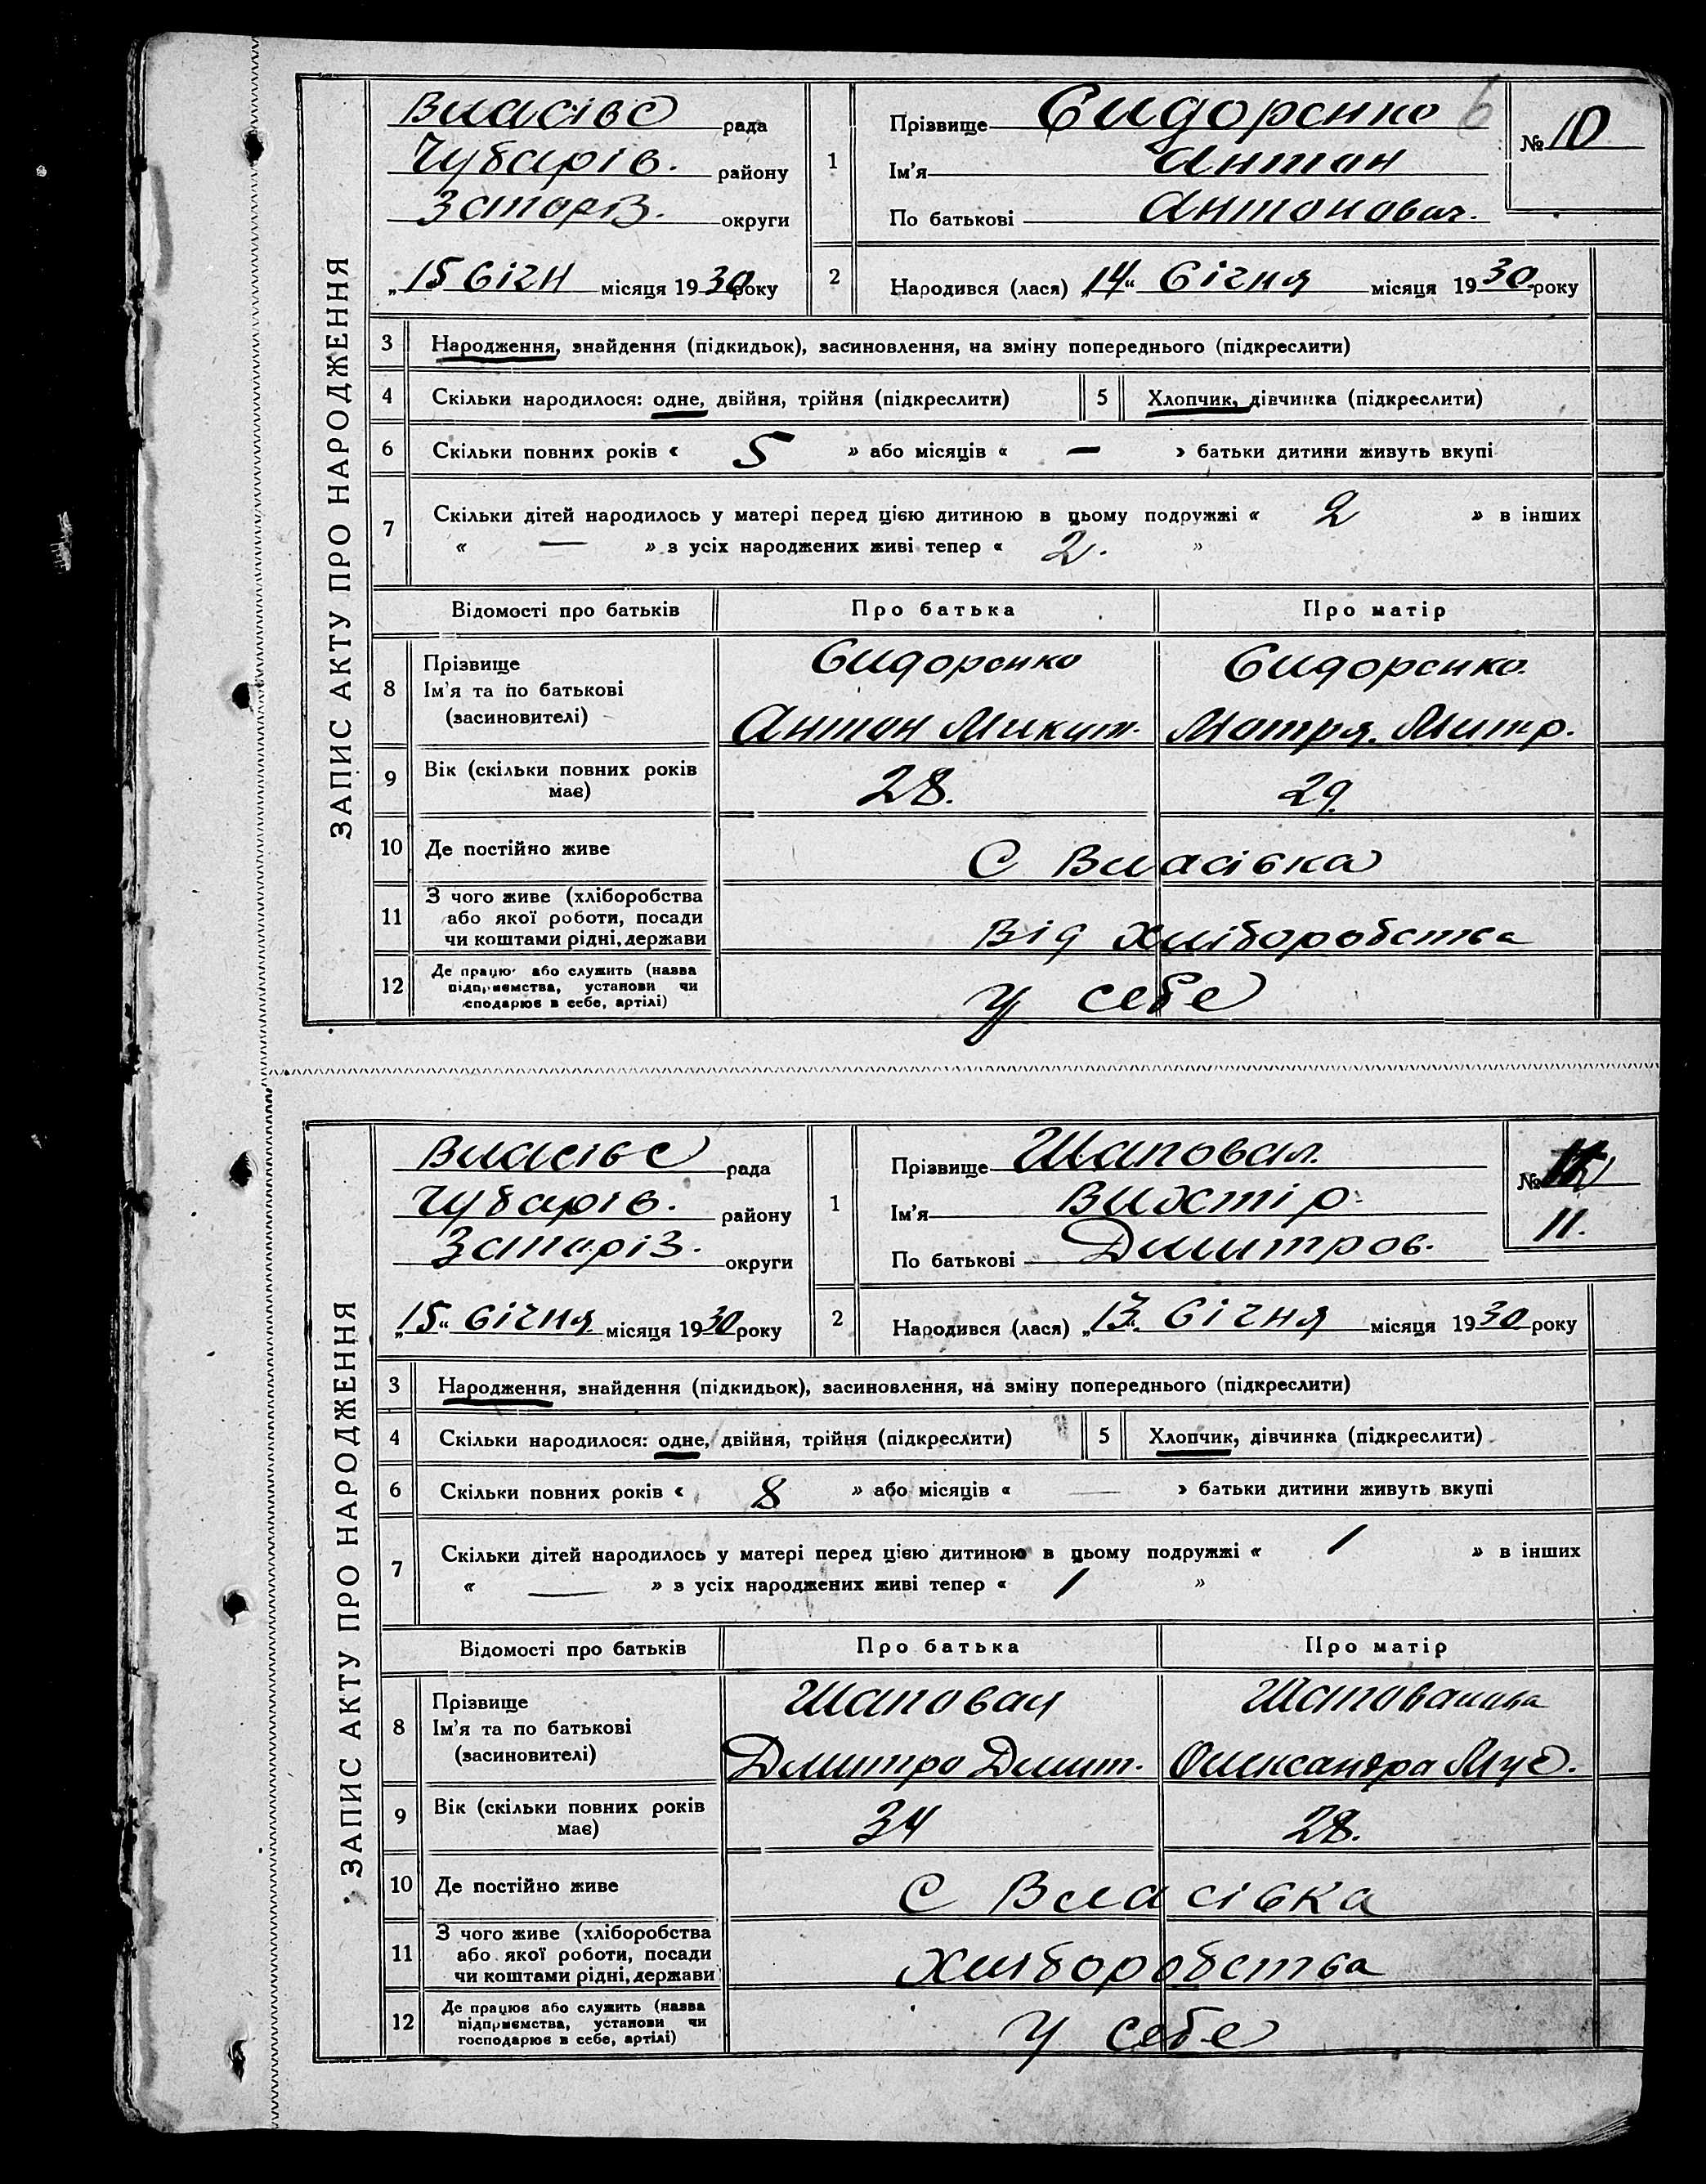 ЗАПИС АКТУ ПРО НАРОДЖЕННЯ
Власівс рада
Чубарів. району
Запоріз. округи
„15 Січн місяця 1930 року
1
Прізвище Сидоренко 6
Ім'я Антон
По батькові Антонович.
№ 10
2 Народився (лася) „14“ Січня місяця 1930 року
3 Народження, знайдення (підкидьок), засиновлення, на зміну попереднього (підкреслити)
4 Скільки народилося: одне, двійня, трійня (підкреслити) 5 Хлопчик, дівчинка (підкреслити)
6 Скільки повних років « 5 » або місяців « — » батьки дитини живуть вкупі
7 Скільки дітей народилось у матері перед цією дитиною в цьому подружжі « 2 » в інших
« — » з усіх народжених живі тепер « 2. »
Відомості про батьків Про батька Про матір
8 Прізвище Сидоренко Сидоренко
Ім'я та по батькові
(засиновителі) Антон Микит. Мотря. Митр.
9 Вік (скільки повних років 28. 29.
має)
10 Де постійно живе С Власівка
11 З чого живе (хліборобства
або якої роботи, посади
чи коштами рідні, держави Від хліборобства
12 Де працю або служить (назва
підприємства, установи чи
сподарює в себе, артілі) у себе
ЗАПИС АКТУ ПРО НАРОДЖЕННЯ
Власівс рада
Чубарів. району
Запоріз. округи
„15“ Січня місяця 1930 року
1
Прізвище Шаповал.
Ім'я Вихтір
По батькові Дмитров.
№
11.
2 Народився (лася) „13. Січня місяця 1930 року
3 Народження, знайдення (підкидьок), засиновлення, на зміну попереднього (підкреслити)
4 Скільки народилося: одне, двійня, трійня (підкреслити) 5 Хлопчик, дівчинка (підкреслити)
6 Скільки повних років « 8 » або місяців « — » батьки дитини живуть вкупі
7 Скільки дітей народилось у матері перед цією дитиною в цьому подружжі « 1 » в інших
« — » з усіх народжених живі тепер « 1 »
Відомості про батьків Про батька Про матір
8 Прізвище Шаповал Шаповалова
Ім'я та по батькові
(засиновителі) Дмитро Дмит. Олександра
9 Вік (скільки повних років 34 28.
має)
10 Де постійно живе С Власівка
11 З чого живе (хліборобства
або якої роботи, посади
чи коштами рідні, держави хліборобства
12 Де працює або служить (назва
підприємства, установи чи
господарює в себе, артілі) у себе